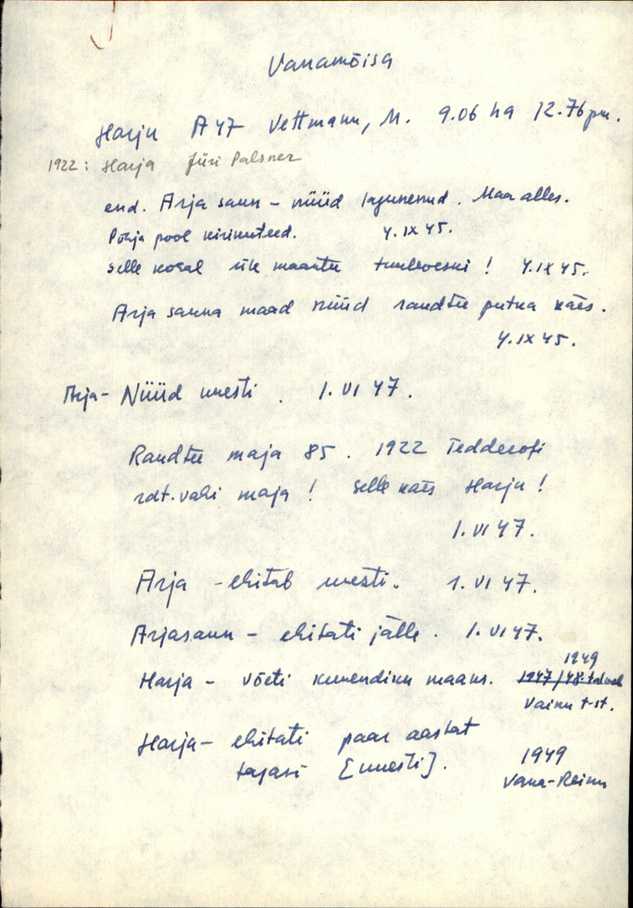 Vanamõisa
Harju A47 Vettmann, M. 9.06 ha 12.76 pm.
1922: Harja Jüri Palsner
end. Arja saun – nüüd lagunenud. Maa alles.
Põhja pool kirimuteed. 4.IX 45.
Selle kohal üle maantee tuuleveski! 4.IX 45.
Arja sauna maad nüüd raudtee putka käes.
4.IX 45.
Arja – Nüüd uuesti. 1.VI 47.
Raudtee maja 85. 1922 Tedderofi
rdt. vahi maja! Selle käes Harju!
1.VI 47.
Arja – ehitab uuesti. 1.VI 47.
Arjasaun – ehitati jälle. 1.VI 47.
1949
Harja – võeti kunendiku maaks. 1947/48
Vainu t-st.
Harja – ehitati paar aastat
tagasi [uuesti]. 1949
Vana-Reinu